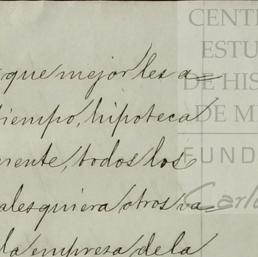 que mejor les a=
tiempo, hipoteca
mente, todos los
alesquiera otros va=
la empresa de la
CENT
ESTU
DE HIS
DE M
FUND
Carlo